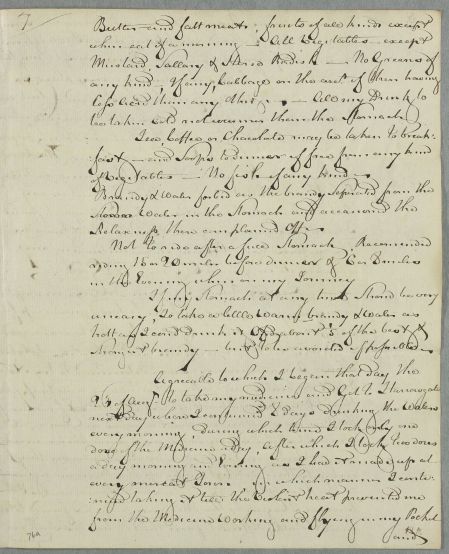 7
Butter and fatt meats fruits of all kinds except
when eat of a morning — All Vegetables except
Mustard, Sallary & Horse Radish — No Greens of
any kind, if any, Cabbage on the acct of their having
less acid than any other — All my Drink to
be taken cold not warmer than the Stomach
Tea, Coffee or Chocolate may be taken to break-
fast — and Soups to dinner if free from any kind
of Vegetables — No fish of any kind
Brandy & Water forbid as the brandy separated from the
Water in the Stomach and occasiond the
Relaxness there complained off
Not to ride after a full Stomach Recomended
riding 18 or 20 miles before dinner & 6 or 8 miles
in the Evening when on my Journey
If my Stomach at any time should be very
uneasy, to take a little warm brandy & Water as
hott as I coud drink it of the best &
strongest brandy — but to be avoided if possible
Agreeable to which I began that day the
to take my medicines and got to Harrogate
next day where I continued 8 days drinking the Waters
every morning, during which time I took only one
dose of the Medicine a day, after which I took two doses
a day morning and Evening as I had it made up at
every market Town which manner I conti-
nued taking it till the violent heat prevented me
from the Medicine working and flying in my Pocket
and
76a